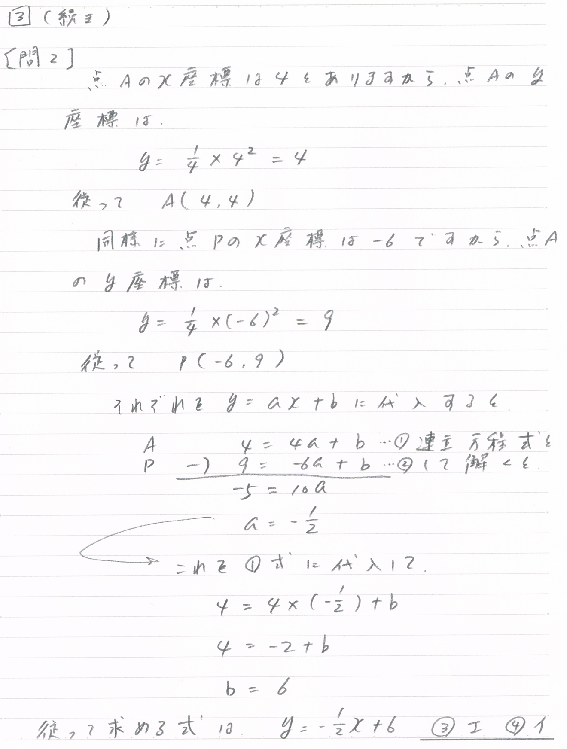 3 (続き)
[問2]
点Aのx座標は4とありますから、点Aのy
座標は、
y = 1/4 × 4² = 4
従って A(4, 4)
同様に点Pのx座標は-6ですから、点A
のy座標は、
y = 1/4 × (-6)² = 9
従って P(-6, 9)
それぞれを y = ax + b に代入すると
A 4 = 4a + b …① 連立方程式と
P -) 9 = -6a + b …② して解くと
-5 = 10a
a = -1/2
これを①式に代入して、
4 = 4 × (-1/2) + b
4 = -2 + b
b = 6
従って求める式は y = -1/2x + 6 ③エ ④イ